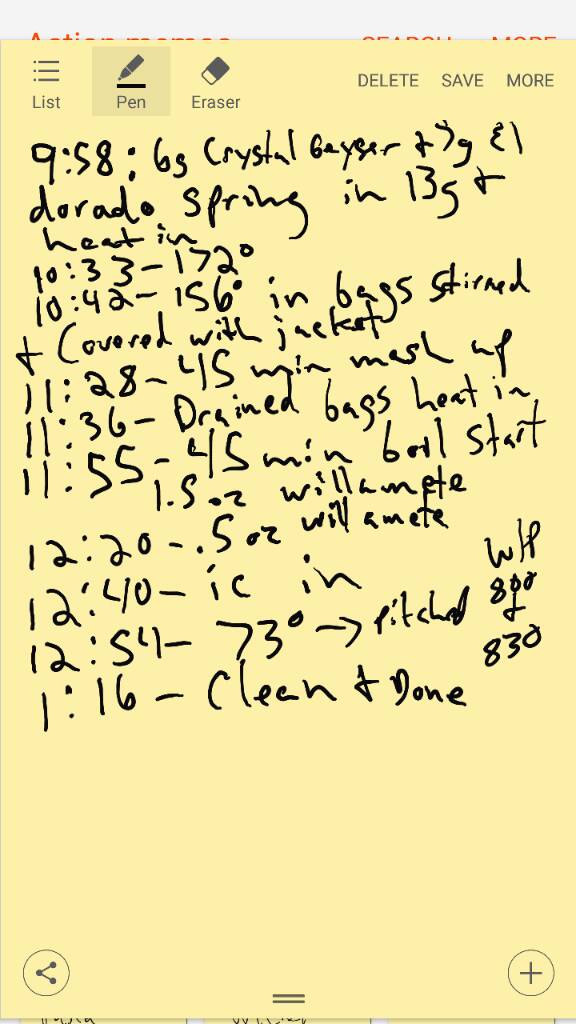 SEARCH MORE
List Pen Eraser DELETE SAVE MORE
9:58: 6g Crystal Geyser + 7g El
dorado spring in 13g +
heat in
10:33-172°
10:42-156° in bags stirred
+ Covered with jacket
11:28-45 min mash up
11:36-Drained bags heat in
11:55-45 min boil start
1.5 oz willamete
12:20-.5 oz willamete
12:40-ic in
12:54-73°→pitched
W/P
800
+
830
1:16-Clean + Done